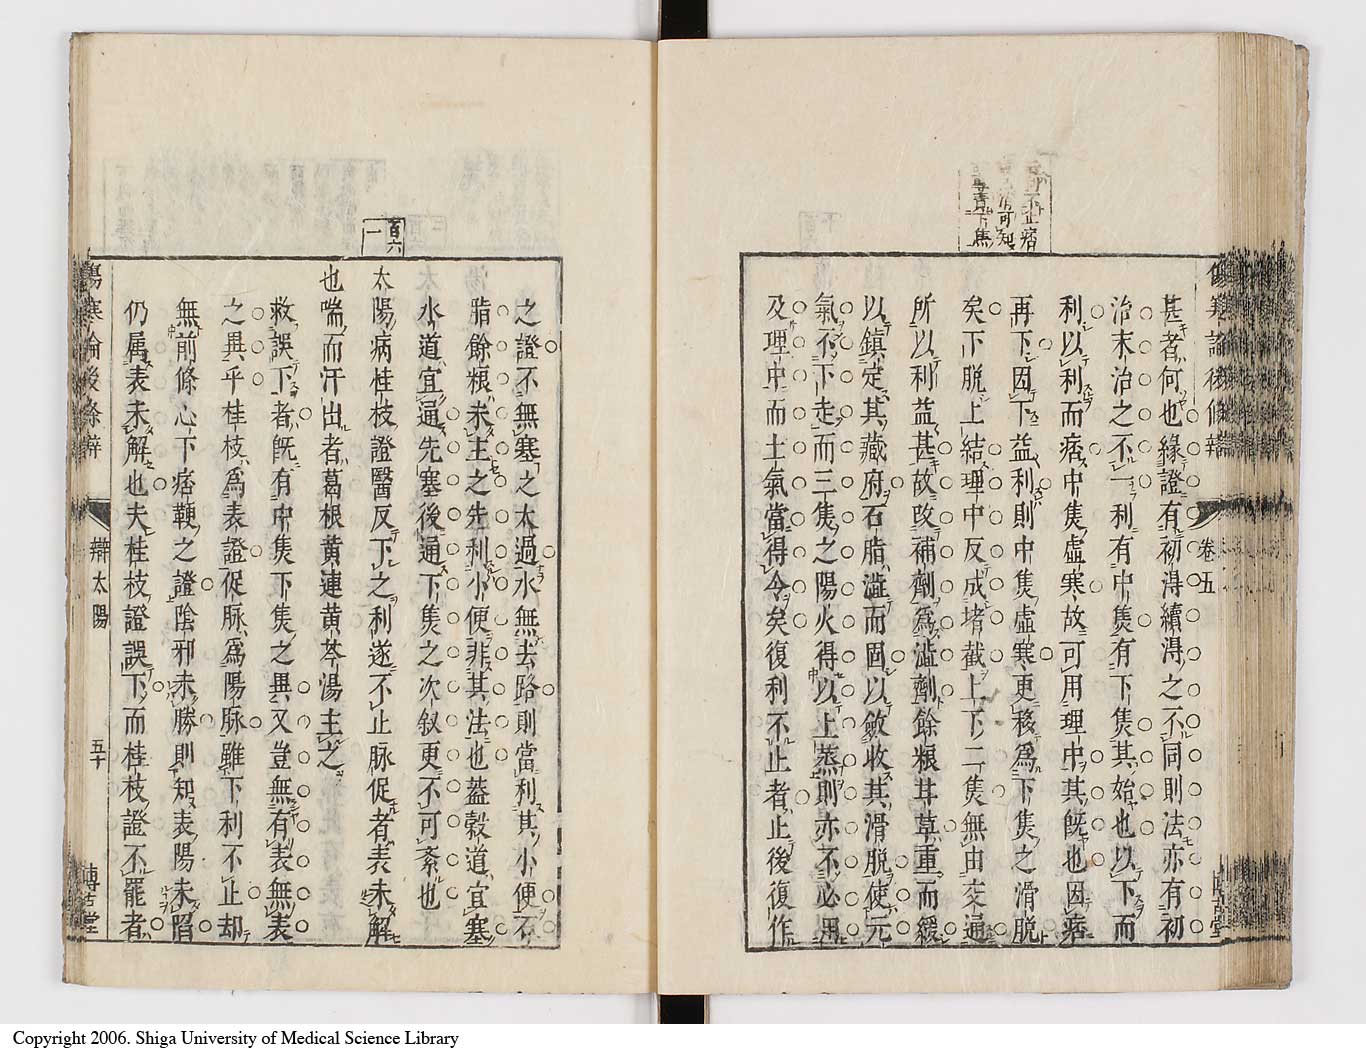 甚者何也緣證有初得續得之不同則法亦有初
治末治之不一利有中焦有下焦其始也以下而
利以利而痞中焦虛寒故可用理中其旣也因痞
再下因下益利則中焦虛寒更移爲下焦之滑脫
矣下脫上結理中反成堵截上下二焦無由交通
所以利益甚故改補劑爲澁劑餘粮甘草重而緩
以鎮定其藏府石脂澁而固以斂收其滑脫使元
氣不下走而三焦之陽火得以上蒸則亦不必用
及理中而土氣當得令矣復利不止者止後復作
卷五
之證不無塞之太過水無去路則當利其小便不
脂餘粮未主之先利小便非其法也蓋穀道宜塞
水道宜通先塞後通下焦之次叙更不可紊也
百六一
太陽病桂枝證醫反下之利遂不止脉促者表未解
也喘而汗出者葛根黃連黃芩湯主之
救誤下者旣有中焦下焦之異又豈無有表無表
之異乎桂枝爲表證促脉爲陽脉雖下利不止却
無前條心下痞鞕之證陰邪未勝則知表陽未陷
仍属表未解也夫桂枝證誤下而桂枝證不罷者
傷寒論後條辨
辯太陽
五十
博古堂
Copyright 2006. Shiga University of Medical Science Library